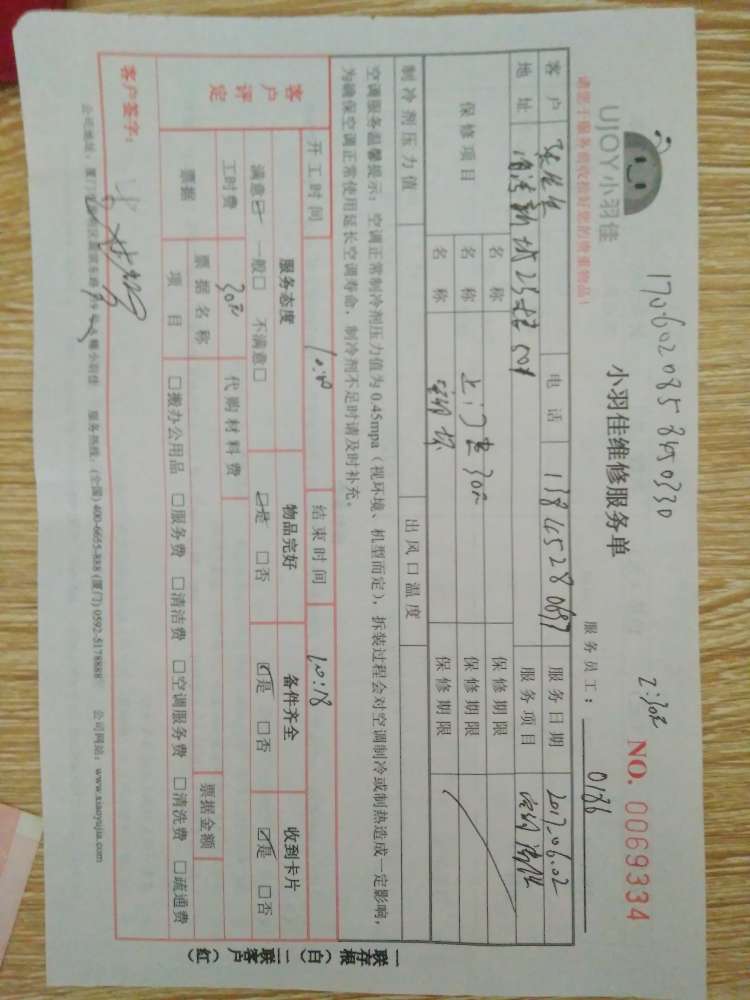 1706020858450330
2:30£
UJOY小羽佳
小羽佳维修服务单
NO. 0069334
请您于服务前收拾好您的贵重物品!
服务员工: 0186
客户 张先生 电话 13845280697 服务日期 2017.06.02
地址 新城25号楼501 服务项目
保修项目 名称 保修期限
名称 上门费30元 保修期限
名称 保修期限
制冷剂压力值 出风口温度
空调服务温馨提示:空调正常制冷剂压力值为0.45mpa(视环境、机型而定),拆装过程会对空调制冷或制热造成一定影响,
为确保空调正常使用延长空调寿命,制冷剂不足时请及时补充。
开工时间 10:10 结束时间 10:18
客户评定 服务态度 物品完好 备件齐全 收到卡片
满意☑ 一般□ 不满意□ ☑是 □否 ☑是 □否 ☑是 □否
工时费 30元 代购材料费
票据 票据名称 票据金额
项目 □搬办公用品 □服务费 □清洁费 □空调服务费 □清洗费 □疏通费
客户签字:
公司地址:厦门 小羽佳 服务热线:(全国)400-6655-888 (厦门)0592-5178888 公司网站:www.xiaoyujia.com
一联存根(白) 二联客户(红)